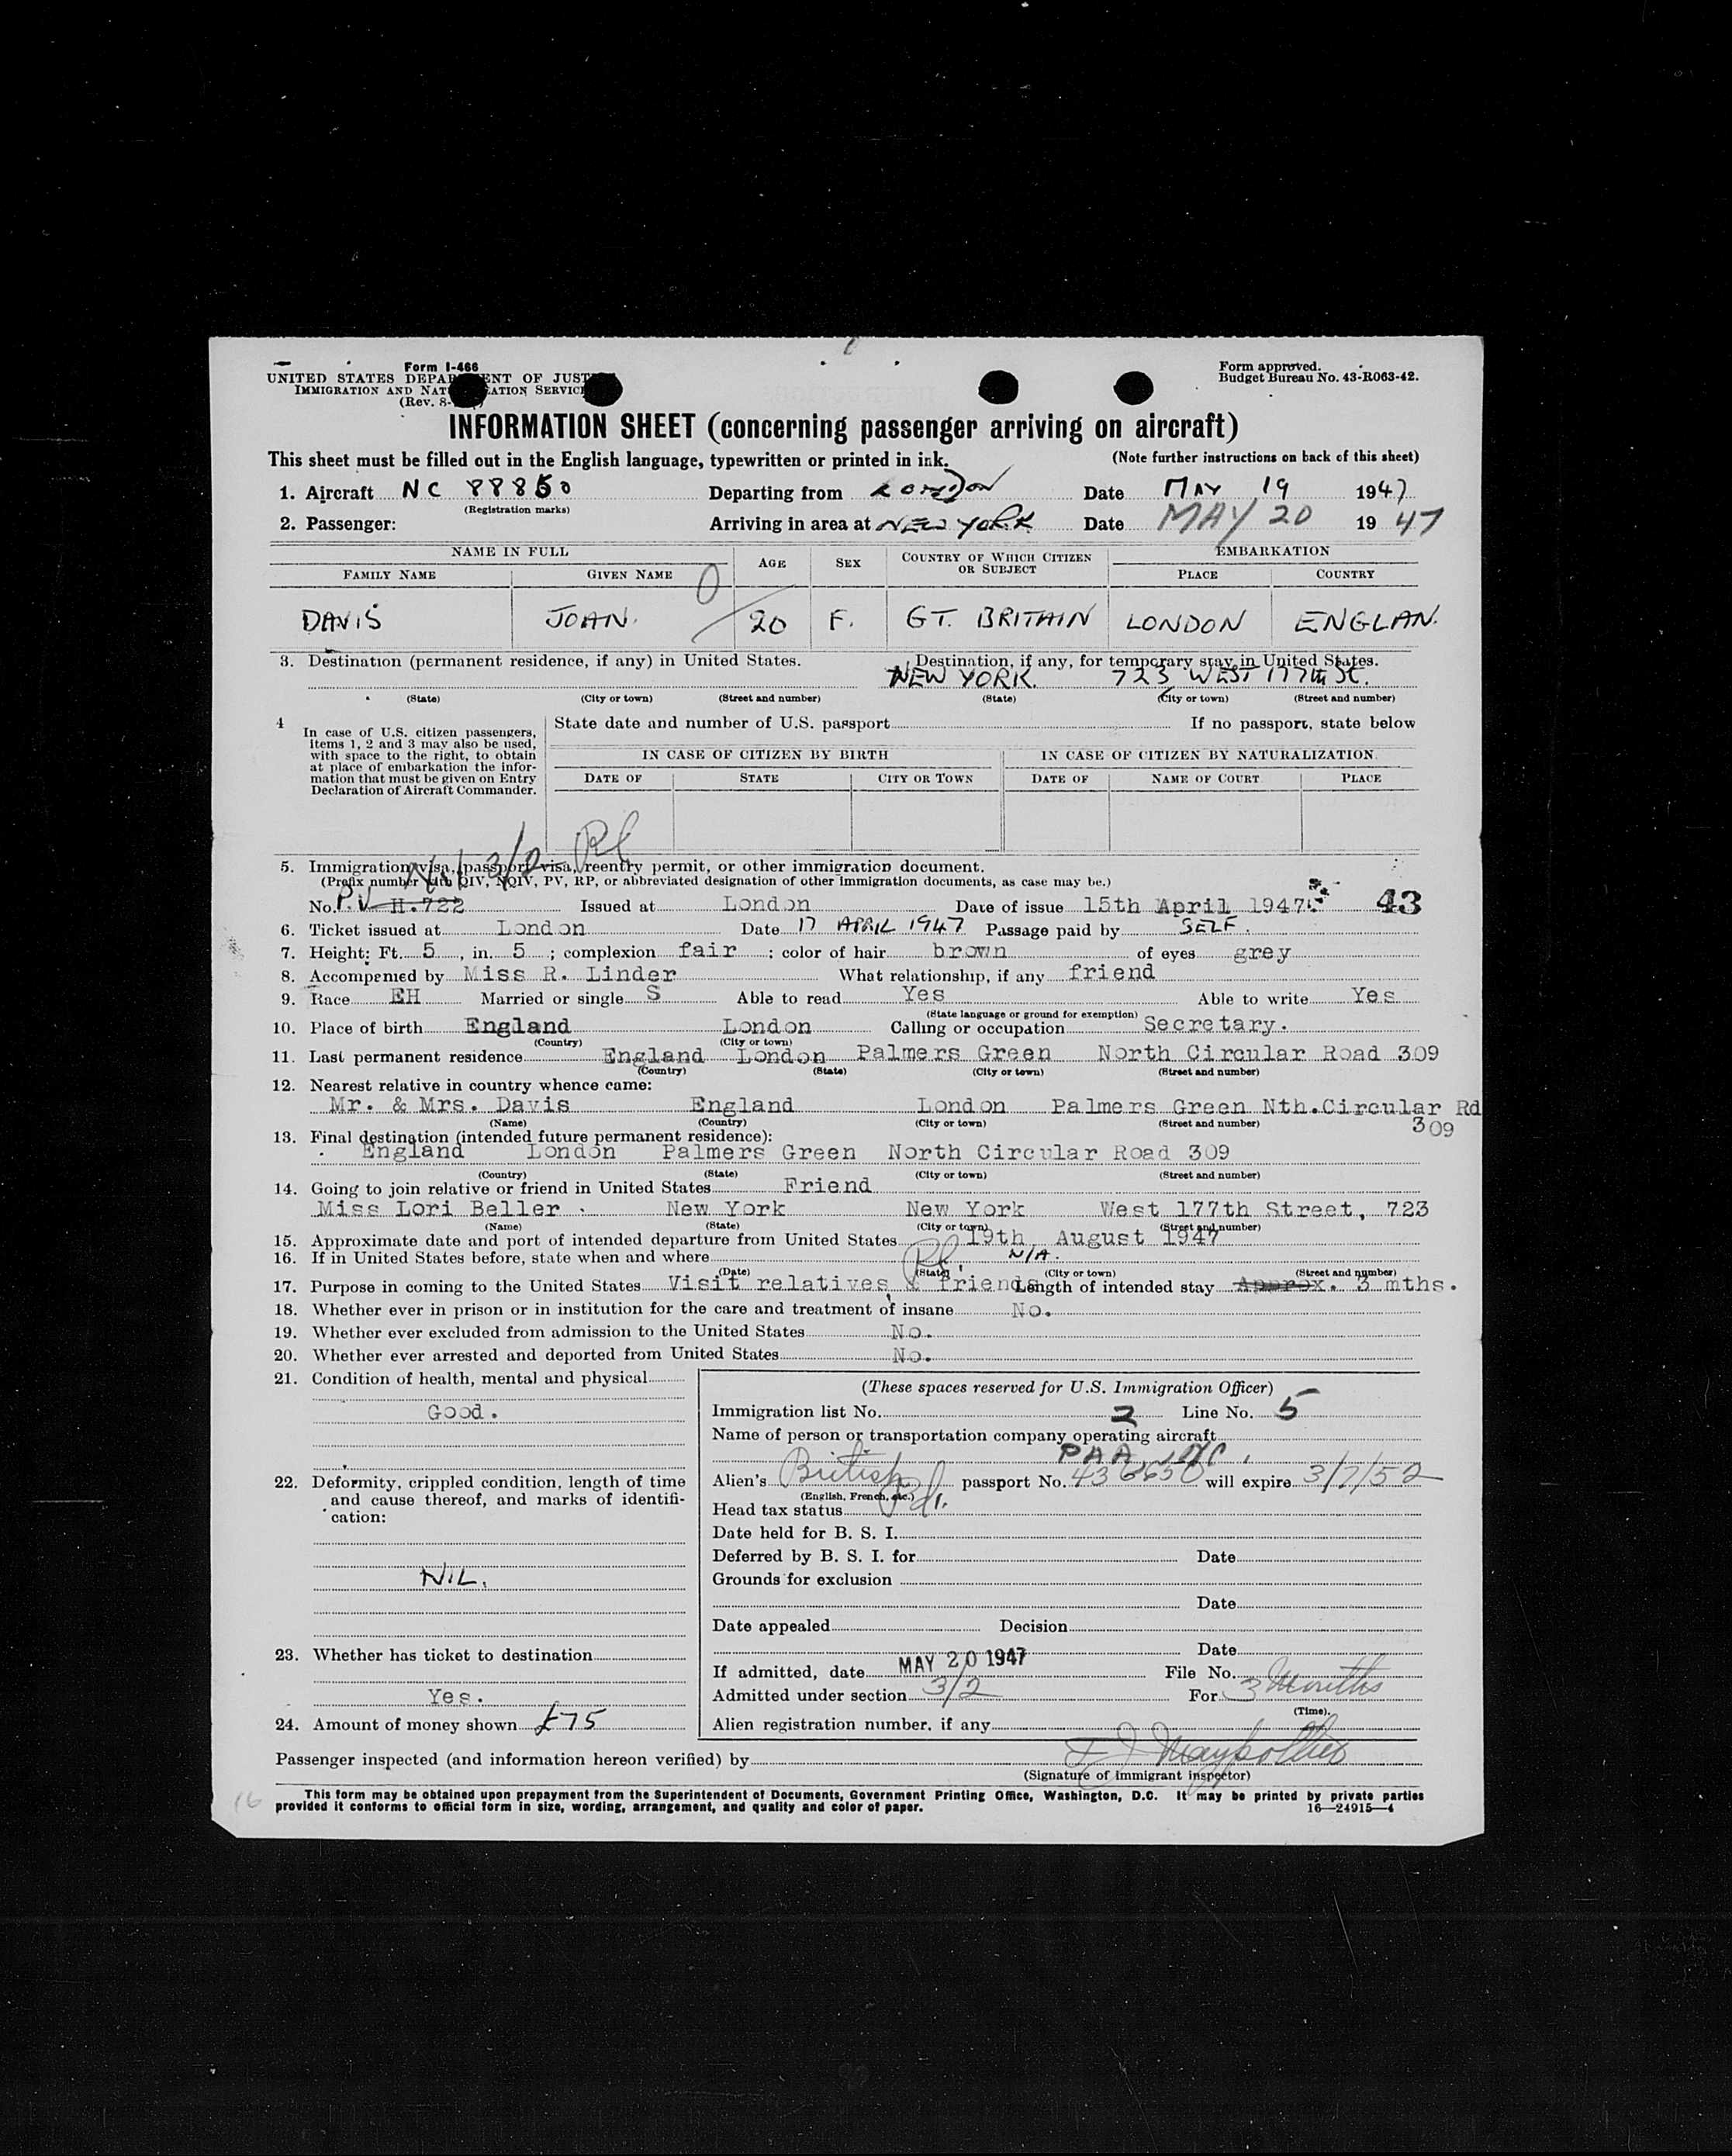 Form I-466
UNITED STATES DEPARTMENT OF JUSTICE
IMMIGRATION AND NATURALIZATION SERVICE
(Rev. 8-
Form approved.
Budget Bureau No. 43-R063-42.
INFORMATION SHEET (concerning passenger arriving on aircraft)
This sheet must be filled out in the English language, typewritten or printed in ink. (Note further instructions on back of this sheet)
1. Aircraft NC 88850 Departing from LONDON Date MAY 19 1947
(Registration marks)
2. Passenger: Arriving in area at NEW YORK Date MAY 20 1947
NAME IN FULL AGE SEX COUNTRY OF WHICH CITIZEN OR SUBJECT EMBARKATION
FAMILY NAME GIVEN NAME PLACE COUNTRY
DAVIS JOAN. 20 F. GT. BRITAIN LONDON ENGLAN.
3. Destination (permanent residence, if any) in United States. Destination, if any, for temporary stay in United States.
NEW YORK. 723 WEST 177th St.
(State) (City or town) (Street and number) (State) (City or town) (Street and number)
4 In case of U.S. citizen passengers, items 1, 2 and 3 may also be used, with space to the right, to obtain at place of embarkation the information that must be given on Entry Declaration of Aircraft Commander.
State date and number of U.S. passport If no passport, state below
IN CASE OF CITIZEN BY BIRTH IN CASE OF CITIZEN BY NATURALIZATION
DATE OF STATE CITY OR TOWN DATE OF NAME OF COURT PLACE
3/2
5. Immigration visa, passport visa, reentry permit, or other immigration document.
(Prefix number with QIV, NQIV, PV, RP, or abbreviated designation of other immigration documents, as case may be.)
No. P.V H.722 Issued at London Date of issue 15th April 1947. 43
6. Ticket issued at London Date 17 APRIL 1947 Passage paid by SELF.
7. Height: Ft. 5, in. 5; complexion fair; color of hair brown of eyes grey
8. Accompanied by Miss R. Linder What relationship, if any friend
9. Race EH Married or single S Able to read Yes Able to write Yes
(State language or ground for exemption)
10. Place of birth England London Calling or occupation Secretary.
(Country) (City or town)
11. Last permanent residence England London Palmers Green North Circular Road 309
(Country) (State) (City or town) (Street and number)
12. Nearest relative in country whence came:
Mr. & Mrs. Davis England London Palmers Green Nth.Circular Rd
309
(Name) (Country) (City or town) (Street and number)
13. Final destination (intended future permanent residence):
England London Palmers Green North Circular Road 309
(Country) (State) (City or town) (Street and number)
14. Going to join relative or friend in United States Friend
Miss Lori Beller New York New York West 177th Street, 723
(Name) (State) (City or town) (Street and number)
15. Approximate date and port of intended departure from United States 19th August 1947
16. If in United States before, state when and where N/A.
(Date) (State) (City or town) (Street and number)
17. Purpose in coming to the United States Visit relatives & friends Length of intended stay Approx. 3 mths.
18. Whether ever in prison or in institution for the care and treatment of insane No.
19. Whether ever excluded from admission to the United States No.
20. Whether ever arrested and deported from United States No.
21. Condition of health, mental and physical
Good.
22. Deformity, crippled condition, length of time and cause thereof, and marks of identification:
NIL.
23. Whether has ticket to destination
Yes.
24. Amount of money shown £75
(These spaces reserved for U.S. Immigration Officer)
Immigration list No. 2 Line No. 5
Name of person or transportation company operating aircraft
PAA INC.
Alien's British passport No. 436650 will expire 3/7/52
(English, French, etc.)
Head tax status
Date held for B. S. I.
Deferred by B. S. I. for Date
Grounds for exclusion
Date
Date appealed Decision
Date
If admitted, date MAY 20 1947 File No.
Admitted under section 3/2 For 3 Months
(Time).
Alien registration number, if any
Passenger inspected (and information hereon verified) by
(Signature of immigrant inspector)
This form may be obtained upon prepayment from the Superintendent of Documents, Government Printing Office, Washington, D.C. It may be printed by private parties
provided it conforms to official form in size, wording, arrangement, and quality and color of paper. 16—24915-4
16